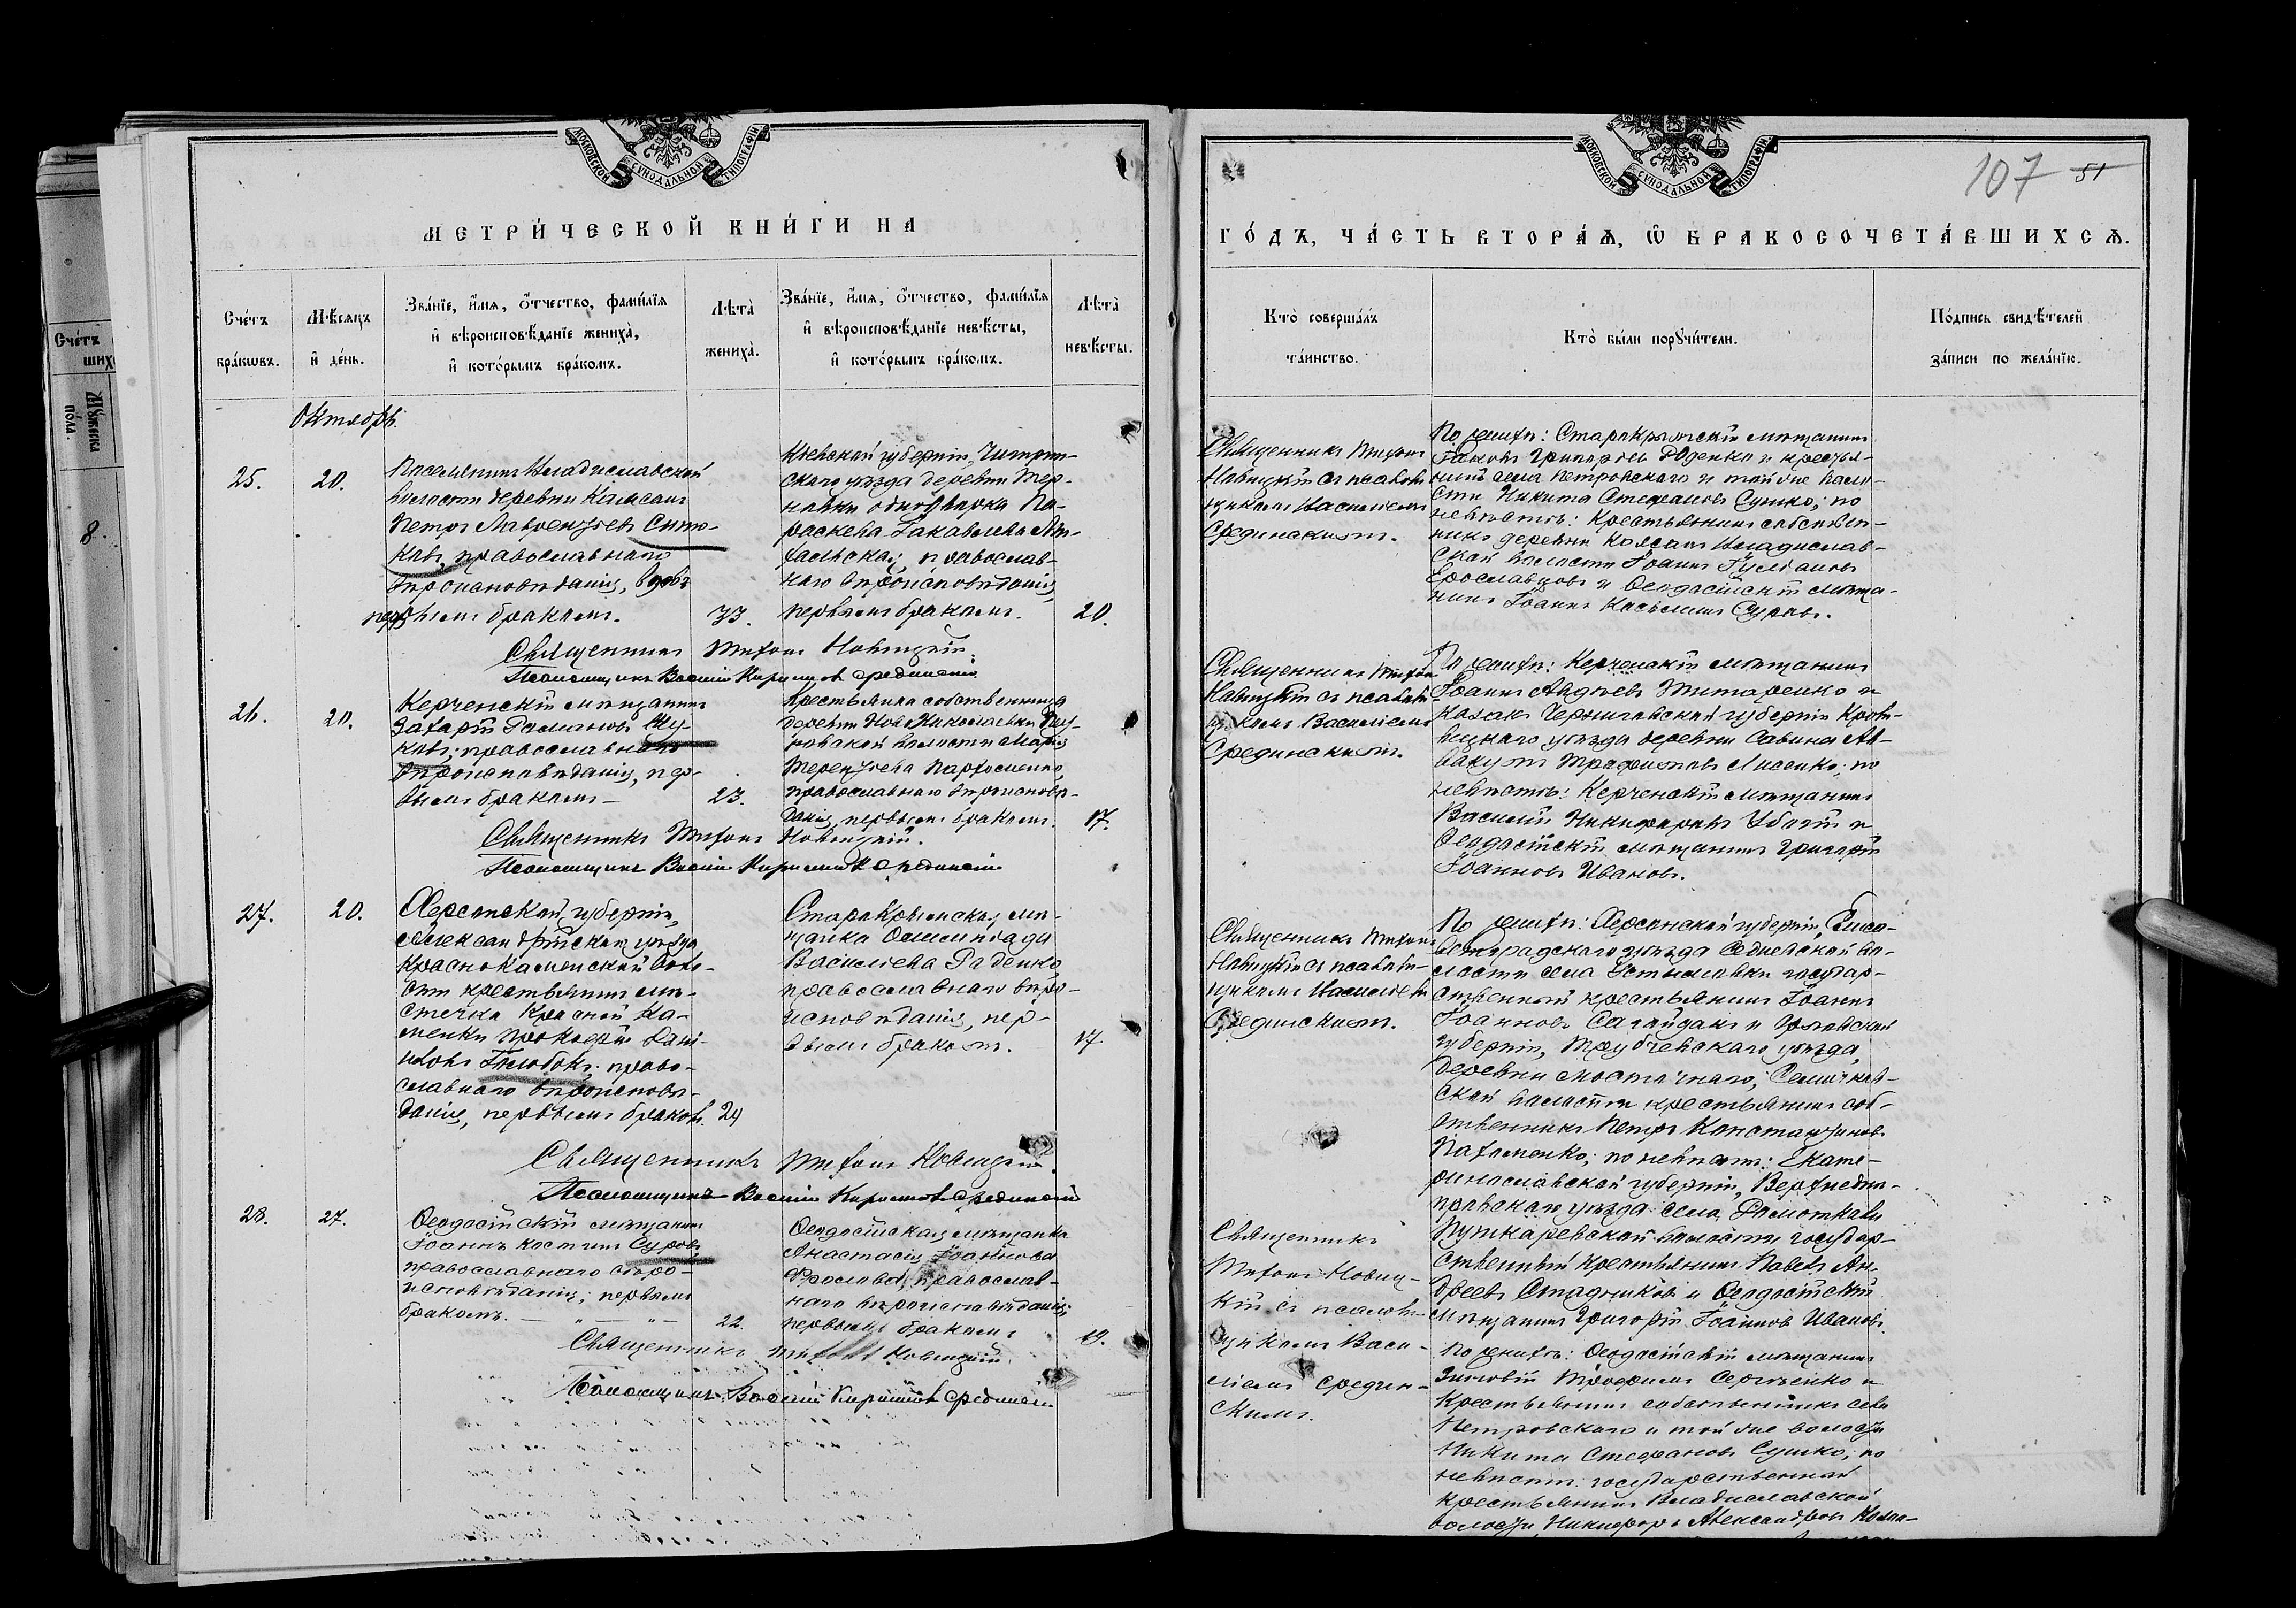 МОСКОВСКОЙ СѴНОДАЛЬНОЙ ТИПОГРАФІИ
МЕТРИ́ЧЕСКОЙ КНИ́ГИ НА
Сче́тъ бра́кѡвъ.
Мѣ́сяцъ и҆ де́нь.
Зва́нїе, и҆́мя, ѻ҆́тчество, фами́лїя
и҆ вѣроисповѣ́данїе жениха̀,
и҆ кото́рымъ бра́комъ.
Лѣта̀ жениха̀.
Зва́нїе, и҆́мя, ѻ҆́тчество, фами́лїя
и҆ вѣроисповѣ́данїе невѣ́сты,
и҆ кото́рымъ бра́комъ.
Лѣта̀ невѣ́сты.
Октябрь.
25.
20.
Поселянинъ Владиславской
волости деревни
Петръ Лаврентьевъ
православнаго
вѣроисповѣданія,
первымъ бракомъ.
33.
Кіевской губерніи,
скаго уѣзда деревни Тер-
новки однодворка Па-
раскева Іаковлева
православ-
наго вѣроисповѣданія,
первымъ бракомъ.
20.
Священникъ Тихонъ Новицкій.
Псаломщикъ Василій Кириловъ Срединскій
26.
20.
Керченскій мѣщанинъ
Захарій Романовъ Жу-
ковъ, православнаго
вѣроисповѣданія, пер-
вымъ бракомъ —
23.
Крестьянка собственница
деревни Ново Николаевки
волости Марія
Терентьева Пархоменко,
православнаго вѣроисповѣ-
данія, первымъ бракомъ.
17.
Священникъ Тихонъ Новицкій.
Псаломщикъ Василій Кириловъ Срединскій
27.
20.
Херсонской губерніи,
Александрійскаго уѣзда
Краснокаменской воло-
сти крестьянинъ мѣ-
стечка Красной Ка-
менки Прокофій Дані-
иловъ Голобокъ, право-
славнаго вѣроисповѣ-
данія, первымъ бракомъ.
24
Старокрымская мѣ-
щанка Олимпіада
Василіева Раденко,
православнаго вѣро-
исповѣданія, пер-
вымъ бракомъ.
17.
Священникъ Тихонъ Новицкій.
Псаломщикъ Василій Кириловъ Срединскій
28.
27.
Ѳеодосійскій мѣщанинъ
Іоаннъ Косминъ Суровъ
православнаго вѣро-
исповѣданія; первымъ
бракомъ.
22.
Ѳеодосійская мѣщанка
Анастасія Іоаннова
православ-
наго вѣроисповѣданія;
первымъ бракомъ
19.
Священникъ Тихонъ Новицкій
Псаломщикъ Василій Кириловъ Срединскій
МОСКОВСКОЙ СѴНОДАЛЬНОЙ ТИПОГРАФІИ
107
51
ГО́ДЪ, ЧА́СТЬ ВТОРА́Ѧ, Ѽ БРАКОСОЧЕТА́ВШИХСѦ.
Кто̀ соверша́лъ та́инство.
Кто̀ бы́ли порꙋчи́тели.
По́дпись свидѣ́телей за́писи по жела́нїю.
Священникъ Тихонъ
Новицкій съ псаломщ-
икомъ Василіемъ
Срединскимъ.
По женихѣ: Старокрымскій мѣщанинъ
Іаковъ Григорьевъ и крестья-
нинъ села Петровскаго и той же воло-
сти Никита Стефановъ Сушко; по
невѣстѣ: Крестьянинъ собствен-
никъ деревни Владислав-
ской волости Іоаннъ
и Ѳеодосійскій мѣща-
нинъ Іоаннъ Косминъ Суровъ.
Священникъ Тихонъ
Новицкій съ псаломщ-
икомъ Василіемъ
Срединскимъ.
По женихѣ: Керченскій мѣщанинъ
Іоаннъ Авдѣевъ Титаренко и
козакъ Черниговской губерніи Кроле-
вецкаго уѣзда деревни Савина Ав-
вакумъ Трофимовъ Лисенко; по
невѣстѣ: Керченскій мѣщанинъ
Василій Никифоровъ Убогій и
Ѳеодосійскій мѣщанинъ Григорій
Іоанновъ Ивановъ.
Священникъ Тихонъ
Новицкій съ псаломщ-
икомъ Василіемъ
Срединскимъ.
По женихѣ: Херсонской губерніи, Елиса-
ветградскаго уѣзда во-
лости села государ-
ственный крестьянинъ Іоаннъ
Іоанновъ Сагайдакъ и Орловской
губерніи, Трубчевскаго уѣзда,
деревни
ской волости крестьянинъ соб-
ственникъ Петръ Константиновъ
Пахоменко; по невѣстѣ: Екате-
ринославской губерніи, Верхнеднѣ-
провскаго уѣзда села Домоткани
Пушкаревской волости государ-
ственный крестьянинъ Павелъ Ан-
дреевъ и Ѳеодосійскій
мѣщанинъ Григорій Іоанновъ Ивановъ.
Священникъ
Тихонъ Новиц-
кій съ псалом-
щикомъ Васи-
ліемъ Средин-
скимъ.
По женихѣ: Ѳеодосійскій мѣщанинъ
Зиновій Трофимовъ Сергѣенко и
Крестьянинъ собственникъ села
Петровскаго и той же волости
Никита Стефановъ Сушко; по
невѣстѣ: государственный
крестьянинъ Владиславской
волости, Никифоръ Александровъ
Сче́тъ
Мꙋ́жеска по́ла.
8.